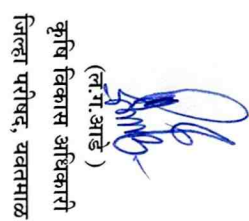 (ल.ग.आडे)
कृषि विकास अधिकारी
जिल्हा परिषद, यवतमाळ